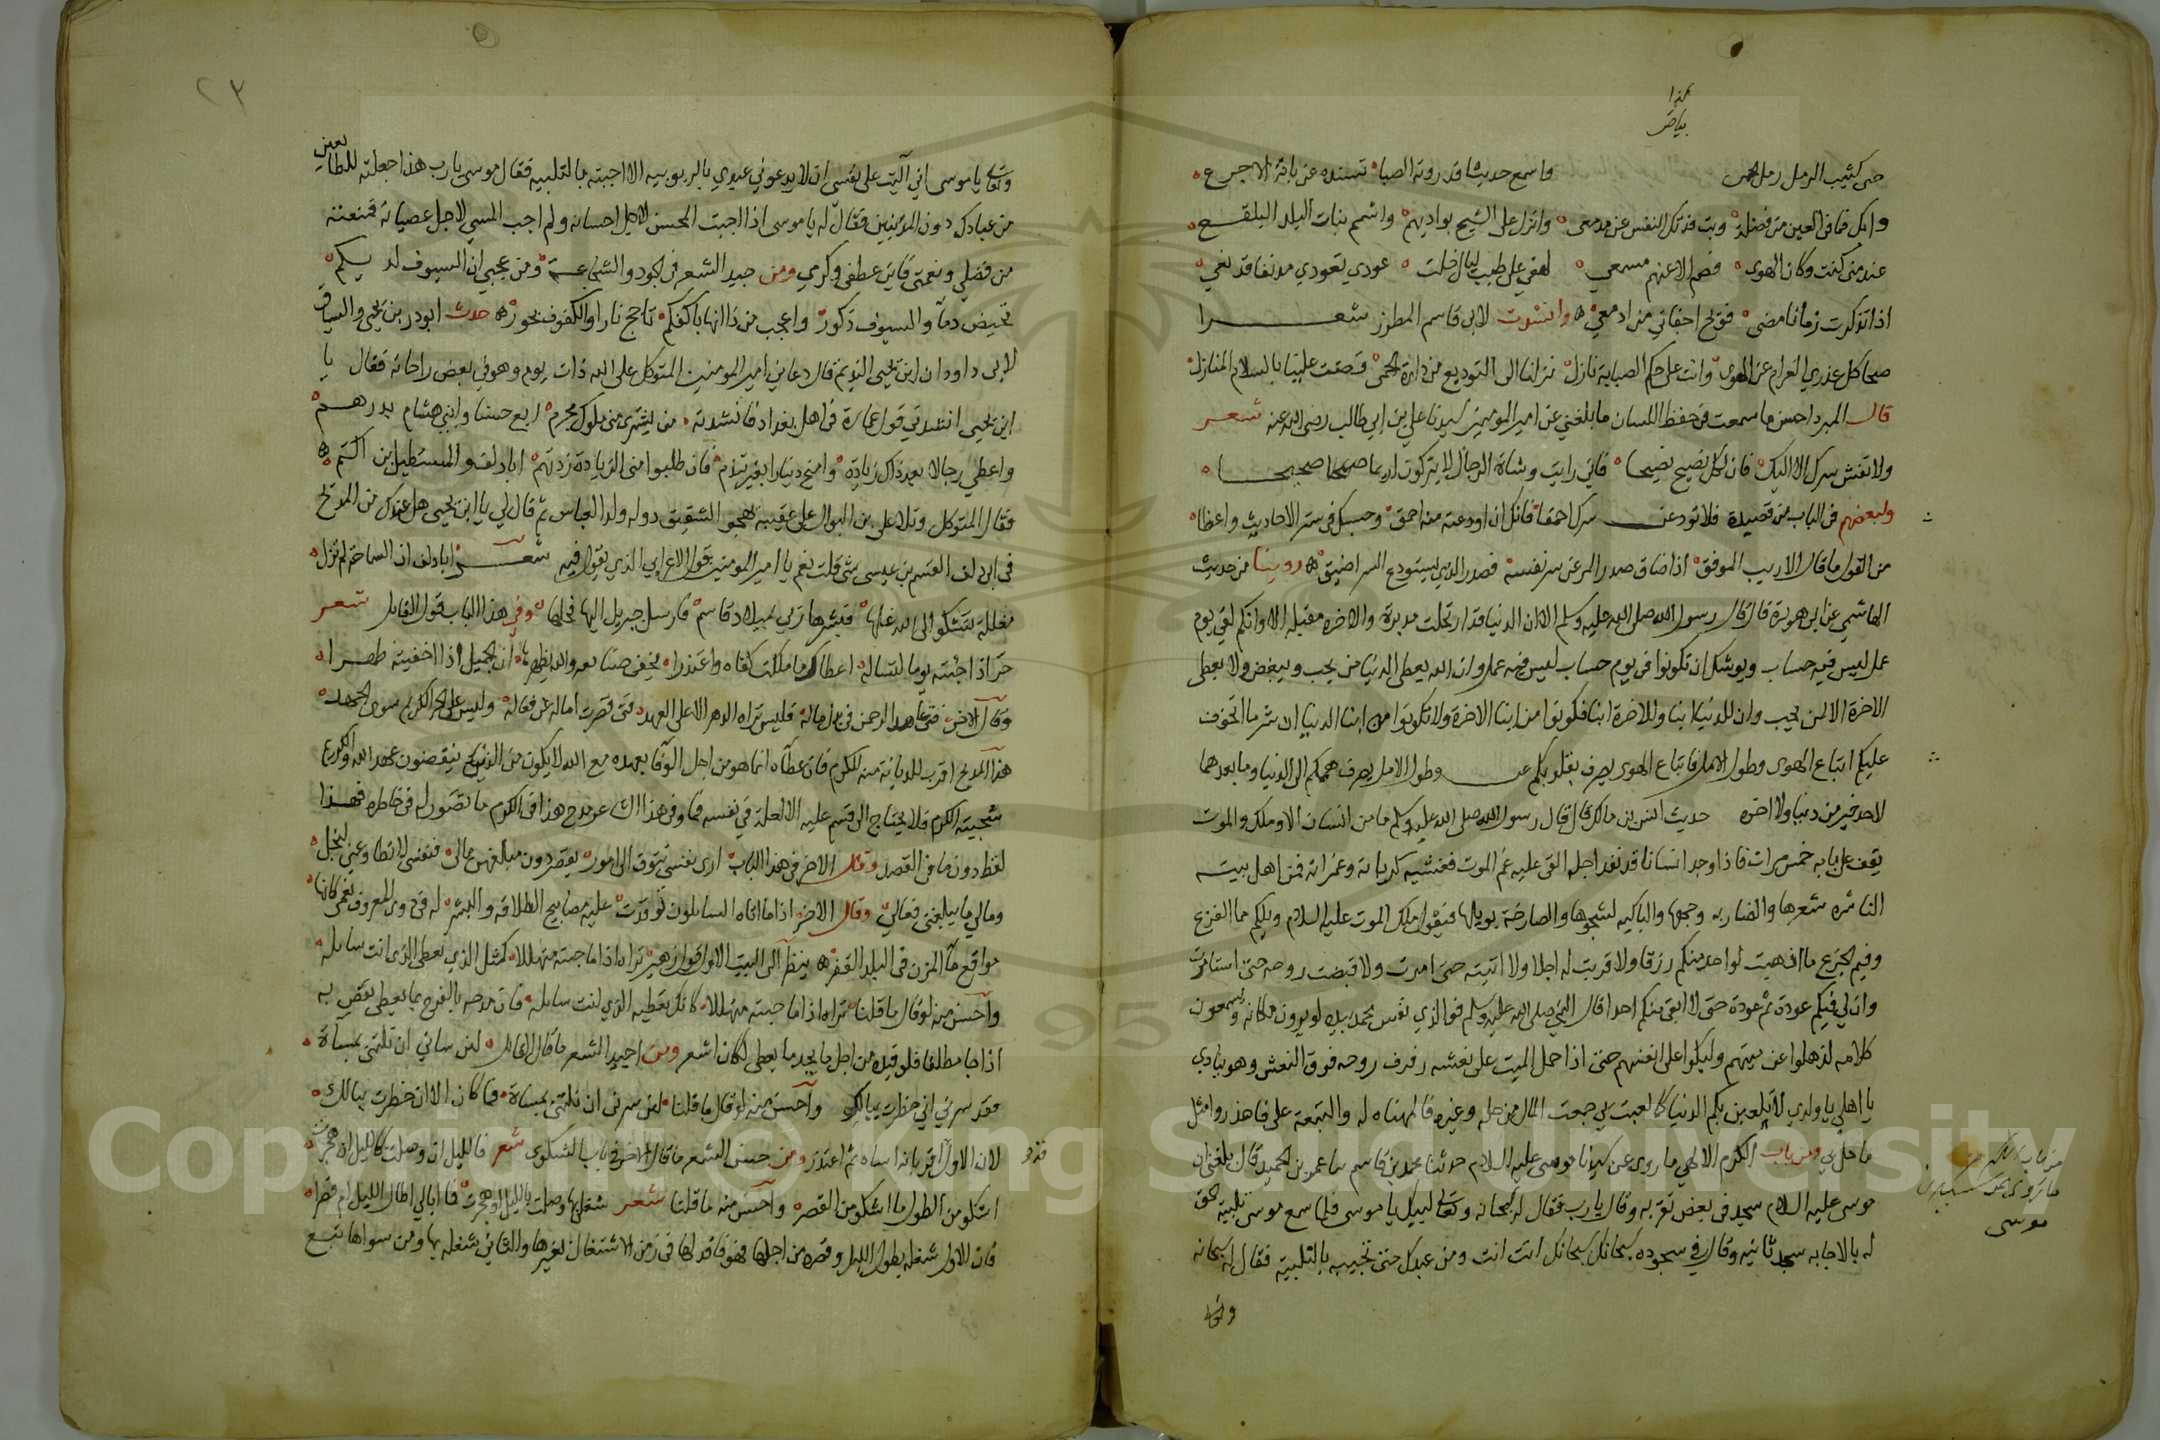 كذا
بياض
حى كثيب الرمل رمل الحمى واسمع حديثا قد روته الصبا تسنده عن بانة الاجرع
وابك فما في العين من فضلة وبت فدتك النفس عن مدمعى وانزل على الشيح بواديهم واشمم نبات البلد البلقع
عند منى كنت وكان الهوى فصم الا عنهم مسمعي لهفي على طيب ليال خلت عودي تعودي مدنفا قد نعي
اذا تذكرت زمانا مضى فويح اجفاني من ادمعي وانشدت لابي قاسم المطرز شعرا
صحا كل عذري الغرام عن الهوى وانت على حكم الصبابة نازل نزلنا الى التوديع من دارة الحمى علينا بالسلام المنازل
قال المبرد احسن ما سمعت في حفظ اللسان ما بلغني عن امير المومنين سيدنا علي بن ابي طالب رضى الله عنه شعر
ولا تفش سرك الا اليك فان لكل نصيح نصيحا فاني رايت وشاة الرجال لا يتركون اديما صحيحا صحيحا
ولبعضهم في الباب من قصيدة فلا تودعن سرك احمقا فانك ان اودعته منه احمق وحسبك في ستر الاحاديث واعظا
من القول ما قال الاريب الموفق اذا ضاق صدر المرء عن سر نفسه فصدر الذي يستودع السر اضيق روينا من حديث
الهاشمي عن ابي هريرة قال قال رسول الله صلى الله عليه وسلم الا ان الدنيا قد ارتحلت مدبرة والاخره مقبله الا وانكم لفي يوم
عمل ليس فيه حساب ويوشك ان تكونوا في يوم حساب ليس فيه عمل وان الله يعطى الدنيا من يحب ويبغض ولا يعطى
الاخرة الا لمن يحب وان للدنيا ابنا وللاخرة ابنا فكونوا من ابنا الاخرة ولا تكونوا من ابنا الدنيا ان شر ما اتخوف
عليكم اتباع الهوى وطول الامل فاتباع الهوى يصرف بقلوبكم عن وطول الامل يصرف هممكم الى الدنيا وما بعدهما
لاحد خير من دنيا ولا اخره حديث انس بن مالك قال قال رسول الله صلى الله عليه وسلم ما من انسان الا وملك الموت
يقف على بابه خمس مرات فاذا وجد انسانا قد نفد اجله القى عليه غم الموت فغشيه كرباته وغمراته فمن اهل بيته
الناشره شعرها والضاربه وجهها والباكيه لشجوها والصارخة بويلها فيقول ملك الموت عليه السلام ويلكم مما الفزع
وفيم الجزع ما اذهبت لواحد منكم رزقا ولا قربت له اجلا ولا اتيته حتى امرت ولا قبضت روحه حتى استامرت
وان لي فيكم عودة ثم عودة حتى لا ابقى منكم احدا قال النبي صلى الله عليه وسلم فو الذي نفس محمد بيده لو يرون مكانه ويسمعون
كلامه لذهلوا عن ميتهم ولبكوا على انفسهم حتى اذا حمل الميت على نعشه رفرف روحه فوق النعش وهو ينادي
يا اهلي يا ولدي لا تلعبن بكم الدنيا كما لعبت بي جمعت المال من حله وغيره فالمهناه له والتبعة على فاحذروا مثل
ما حل بي ومن باب الكرم الالهي ما روى عن سيدنا موسى عليه السلام حدثنا محمد بن قاسم بنا عمر بن عبد الحميد قال بلغني ان
موسى عليه السلام سجد في بعض تقربه وقال يا رب فقال له سبحانه وتعالى لبيك يا موسى فلما سمع موسى تلبية الحق
له بالاجابه سجد ثانيه وقال في سجوده سبحانك سبحانك انت انت ومن عبدك حتى تجيبه بالتلبية فقال له سبحانه
وتعالى
موسى
٢٣
وتعالى يا موسى اني آليت على نفسى ان لا يدعوني عبدي بالربوبيه الا اجبته بالتلبيه فقال موسى يا رب هذا جعلته للطايعين
من عبادك دون المذنبين فقال له يا موسى اذا اجبت المحسن لاجل احسانه ولم اجب المسي لاجل عصيانه فمنعته
من فضلي ونعمتى فاين عطفى وكرمي ومن جيد الشعر في الجود والشجاعة ومن عجبي ان السيوف لديكم
تحيض دمآ والسيوف ذكور واعجب من ذا انها باكفكم تاجج نارا والاكف بحور حدث ابو در بن يحيى
لابي داود ان ابن يحيى النديم قال دعاني امير المومنين المتوكل على الله ذات يوم وهو في بعض راحاته فقال يا
ابن يحيى انشدني قول عمارة في اهل بغداد فانشدته من يشترى منى ملوك مخرم ابع حسنا وابني هشام بدرهم
واعطي رجالا بعد ذاك زيادة وامنح دينارا بغير تندم فان طلبوا منى الزيادة زدتهم ابا دلف والمستطيل بن اكثم
فقال المتوكل ويلا على بن البوال على عقبيه يهجو الشقيق دوله ولد العباس ثم قال لي يا ابن يحيى هل عندك من المديح
في ابي دلف القسم بن عيسى شى قلت نعم يا امير المومنين قول الاعرابي الذي يقول فيه شعر ابا دلف ان السماحة لم تزل
مغللة تشكو الى الله غلها فبشرها ربي بميلاد قاسم فارسل جبريل اليها فحلها وفي هذا الباب قول القايل شعر
حر اذا جئته يوما لتساله اعطاك ما ملكت كفاه واعتذرا يخفي صنايعه والله يظهرها ان الجميل اذا اخفيته ظهرا
وقال الاخر فتى عاهد الرحمن في بذل ماله فليس تراه الدهر الا على العهد فتى قصرت اماله عن فعاله وليس على الحر الكريم سوى الجهد
هذا المديح اقرب للديانة منه للكرم فان عطآه انما هو من اهل الوفا بعهده مع الله لا يكون من الذين ينقضون عهد الله والكرم
سجيته الكرم فلا يحتاج الى قسم عليه الا لعلة في نفسه
لفظ دون ما في القصد وقال الاخر في هذا الباب ارى نفسى تتوق الى امور يقصر دون مبلغهن مالى فنفسى لا تطاوعني لبخل
ومالي ما يبلغنى فعالي وقال الاخر اذا ما اتاه السايلون توقدت عليه مصابيح الطلاقة والبشر له في ذوى المعروف نعمى كانها
مواقع مآ المزن في البلد القفر ينظر الى البيت الاول قول زهير تراه اذا ما جئته متهللا كمثل الذي يعطى الذي انت سايله
واحسن منه لو قال ما قلنا تراه اذا ما جيته متهللا كانك تعطيه الذي انت سايله فان مدحه بالفرح بما يعطى يقضى به
اذا جا مطلقا فلو قيده من اجل ما يجد ما يعطى لكان اشعر ومن اجيد الشعر ما قال لئن ساني ان نلتنى بمساة
فقد سرني اني خطرت ببالك واحسن منه لو قال ما قلنا لئن سرنى ان نلتنى بمساة فما كان الا ان خطرت ببالك
لان الاول اقر بانه اساه ثم اعتذر ومن حسن الشعر ما قال الاخر في باب الشكوى شعر فالليل ان وصلت كالليل ان هجرت
اشكو من الطول ما اشكو من القصر واحسن منه ما قلنا شعر شغلى بها وصلت بالليل او هجرت فما ابالي اطال الليل ام قصرا
فان الاول شغله بطول الليل وقصره من اجلها فهو فاقد لها في زمن الاشتغال بغيرها والثاني شغله بها ومن سواها تبع